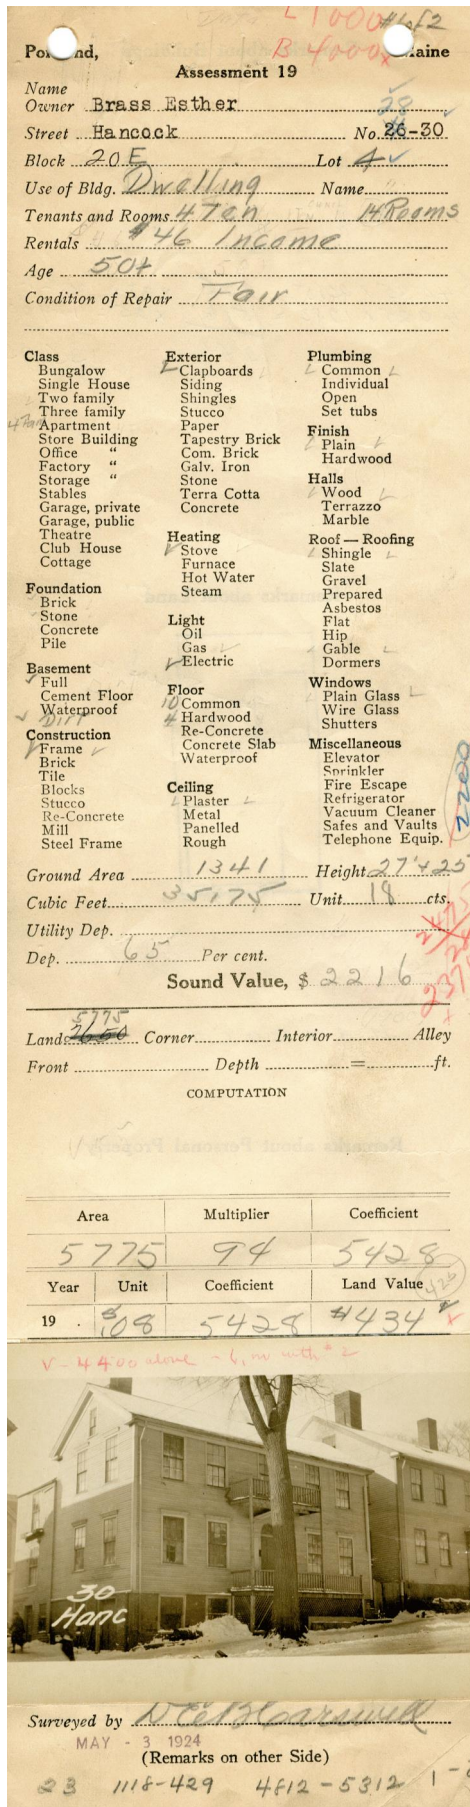 L 1000 #1 of 2
B 4000 x
Portland, Maine
Assessment 19
Name
Owner Brass Esther
28
Street Hancock No. 26-30
Block 20 E Lot 4
Use of Bldg. Dwelling Name
Tenants and Rooms 4 Ten 14 Rooms
Rentals $46 Income
Age 50+
Condition of Repair Fair
Class
Bungalow
Single House
Two family
Three family
Apartment
Store Building
Office "
Factory "
Storage "
Stables
Garage, private
Garage, public
Theatre
Club House
Cottage
Foundation
Brick
Stone
Concrete
Pile
Basement
Full
Cement Floor
Waterproof
Dirt
Construction
Frame
Brick
Tile
Blocks
Stucco
Re-Concrete
Mill
Steel Frame
Exterior
Clapboards
Siding
Shingles
Stucco
Paper
Tapestry Brick
Com. Brick
Galv. Iron
Stone
Terra Cotta
Concrete
Heating
Stove
Furnace
Hot Water
Steam
Light
Oil
Gas
Electric
Floor
10 Common
4 Hardwood
Re-Concrete
Concrete Slab
Waterproof
Ceiling
Plaster
Metal
Panelled
Rough
Plumbing
Common
Individual
Open
Set tubs
Finish
Plain
Hardwood
Halls
Wood
Terrazzo
Marble
Roof — Roofing
Shingle
Slate
Gravel
Prepared
Asbestos
Flat
Hip
Gable
Dormers
Windows
Plain Glass
Wire Glass
Shutters
Miscellaneous
Elevator
Sprinkler
Fire Escape
Refrigerator
Vacuum Cleaner
Safes and Vaults
Telephone Equip.
2200
Ground Area 1341 Height 27'+25
Cubic Feet 35175 Unit 18 cts.
Utility Dep.
Dep. 65 Per cent.
Sound Value, $ 2216
5775
Land 2650 Corner Interior Alley
Front Depth = ft.
COMPUTATION
Area Multiplier Coefficient
5775 94 5428
Year Unit Coefficient Land Value
19 . $.08 5428 $434
30
Hanc
Surveyed by
MAY - 3 1924
(Remarks on other Side)
23 1118-429 4812-5312